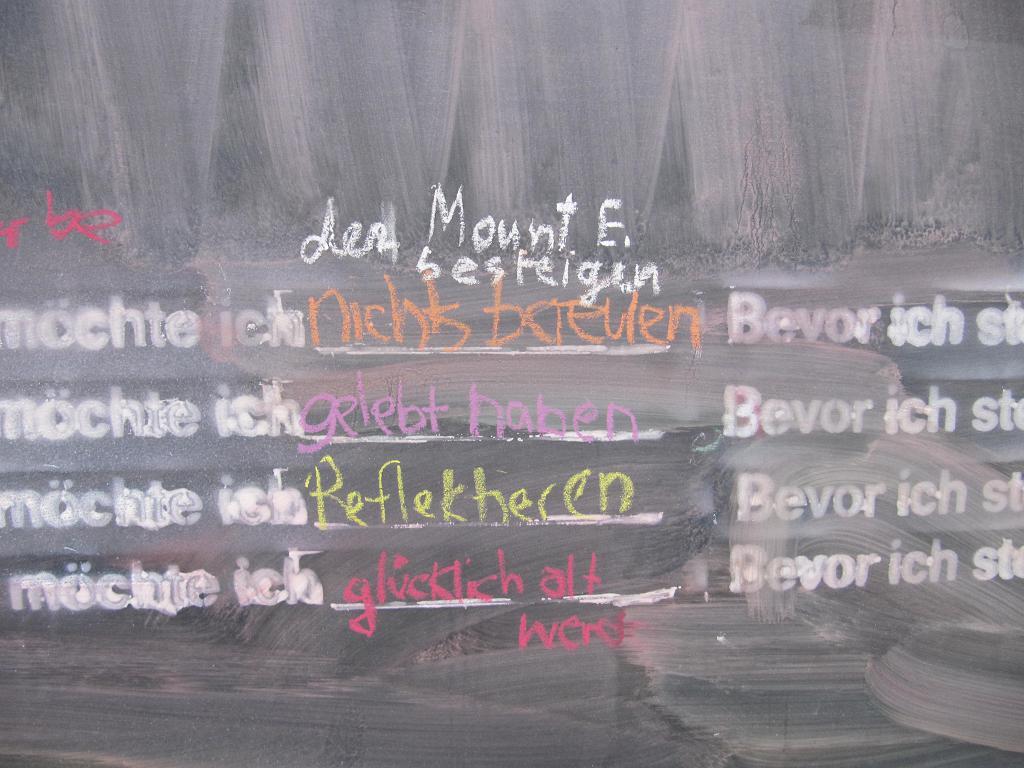 den Mount E.
besteigen
möchte ich nichts bereuen Bevor ich ste
möchte ich gelebt haben Bevor ich ste
möchte ich Reflektieren Bevor ich st
möchte ich glücklich alt Bevor ich ste